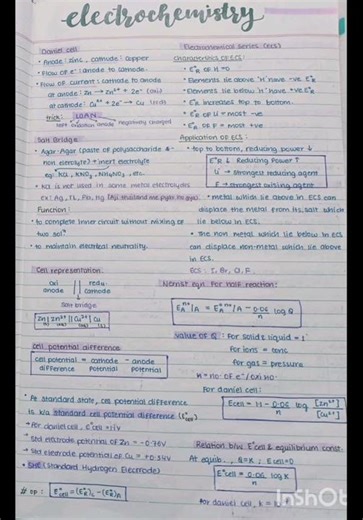 electrochemistry
Daniel cell
• Anode: zinc, cathode: copper
• Flow of e⁻: anode to cathode.
• Flow of current: cathode to anode
at anode: Zn → Zn²⁺ + 2e⁻ (oxi)
at cathode: Cu²⁺ + 2e⁻ → Cu
trick: LOAN
oxidation anode negatively charged
Salt Bridge
• Agar-Agar (paste of polysaccharide &
non electrolyte) + inert electrolyte
eg: KCl, KNO₃, NH₄NO₃, etc.
• KCl is not used in some metal electrodes
ex: Ag, TL, Pb, Hg
Function:
• to complete inner circuit without mixing of
two sol⁰
• to maintain electrical neutrality.
Cell representation.
oxi || redu.
anode || cathode
Salt bridge
Zn | Zn²⁺ || Cu²⁺ | Cu
Cell potential difference
cell potential = cathode - anode
difference Potential Potential
• At standard state, cell potential difference
is k/a standard cell potential difference (E°cell)
• For daniel cell, E°cell = 1.1V
• Std electrode potential of Zn = -0.76V
• Std electrode potential of Cu = +0.34V
• SHE (Standard Hydrogen Electrode)
E°cell = (E°R)c - (E°R)A
Electrochemical Series (ECS)
Characteristics of ECS:
• E°R of H = 0
• Elements lie above 'H' have -ve E°R
• Elements lie below 'H' have +ve E°R
• E°R increases top to bottom.
• E°R of Li = most -ve
• E°R of F = most +ve
Application of ECS:
• top to bottom, reducing power ↓
E°R ↓ Reducing Power ↑
Li → strongest reducing agent
F → strongest oxidising agent
• metal which lie above in ECS can
displace the metal from its salt which
lie below in ECS.
• the non metal which lie below in ECS
can displace non-metal which lie above
in ECS.
ECS: I, Br, Cl, F.
Nernst eqn. For half reaction:
log Q
Value of Q: For solid & liquid = 1
for ions = conc
for gas = pressure
n = no. of e⁻/oxi no.
For daniel cell:
Ecell = 1.1 - 0.06/n log [Zn²⁺]/[Cu²⁺]
Relation b/w E°cell & equilibrium const
At equilib., Q=K, Ecell=0
E°cell = 0.06/n log K
For daniel cell, K =
InShOt